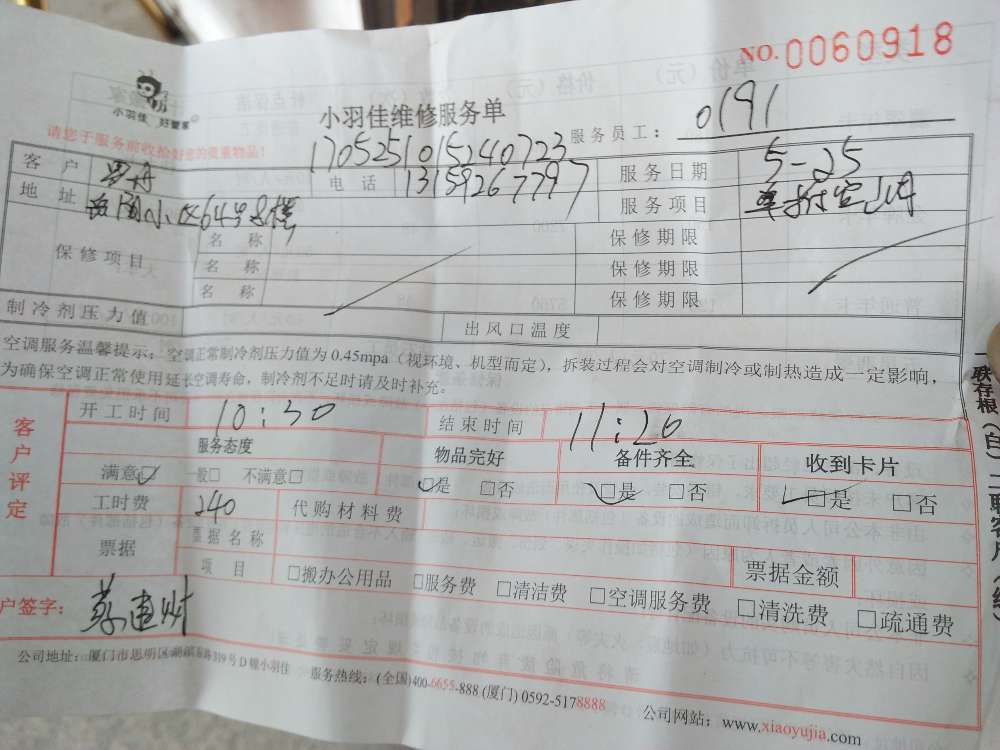 NO.0060918
小羽佳 好管家
小羽佳维修服务单
请您于服务前收拾好您的贵重物品！
1705251015240723
服务员工： 0191
客户 电话 13159267797 服务日期 5-25
地址 小区64号 服务项目
保修项目 名称 保修期限
名称 保修期限
名称 保修期限
制冷剂压力值 出风口温度
空调服务温馨提示：空调正常制冷剂压力值为0.45mpa（视环境、机型而定），拆装过程会对空调制冷或制热造成一定影响，
为确保空调正常使用延长空调寿命，制冷剂不足时请及时补充。
客户评定
开工时间 10:30 结束时间 11:26
服务态度 物品完好 备件齐全 收到卡片
满意☑ 一般□ 不满意□ ☑是 □否 ☑是 □否 ☑是 □否
工时费 240 代购材料费
票据 票据名称 票据金额
项目 □搬办公用品 □服务费 □清洁费 □空调服务费 □清洗费 □疏通费
户签字：
公司地址：厦门市思明区 319号D幢小羽佳 服务热线：(全国)400-6655-888 (厦门) 0592-5178888 公司网站：www.xiaoyujia.com
一联存根（白）二联客户（红）